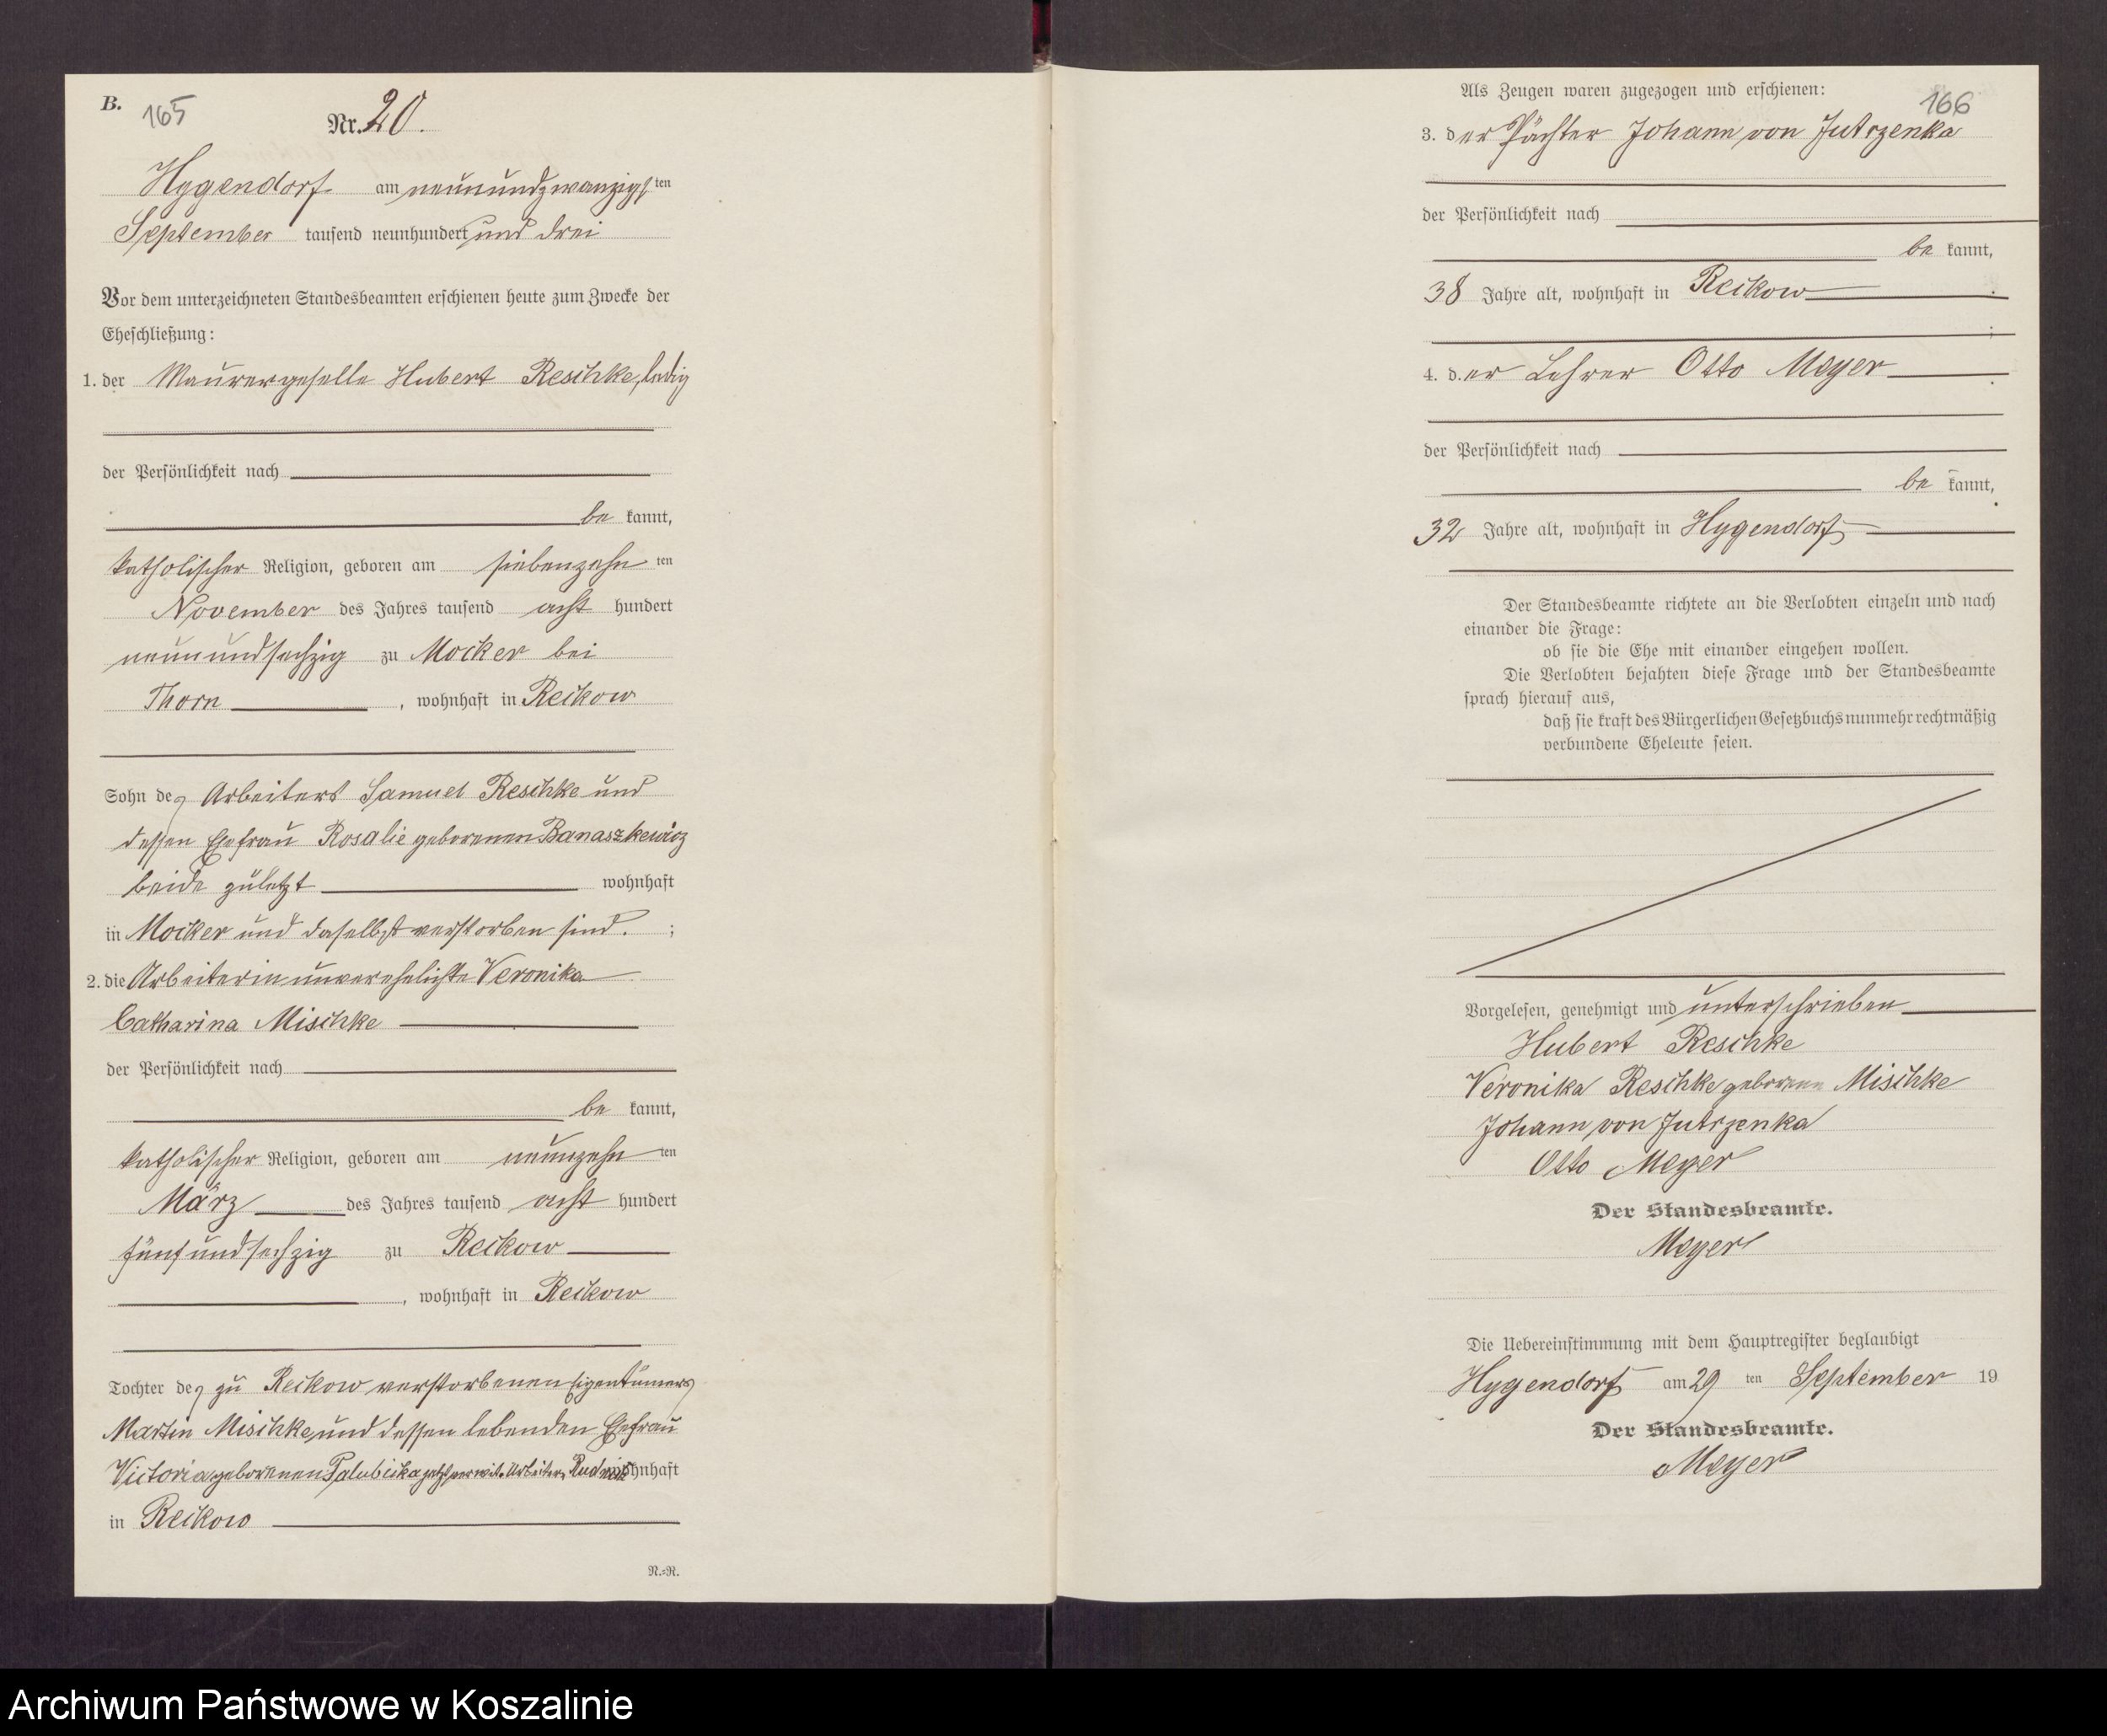 B.
165
Nr. 20.
Hygendorf am neunundzwanzigsten
September tausend neunhundert und drei
Vor dem unterzeichneten Standesbeamten erschienen heute zum Zwecke der
Eheschließung:
1. der Maurergeselle Hubert Reschke, ledig
der Persönlichkeit nach
be kannt,
katholischer Religion, geboren am siebenzehn ten
November des Jahres tausend acht hundert
neunundsechzig zu Mocker bei
Thorn, wohnhaft in Reckow
Sohn des Arbeiters Samuel Reschke und
dessen Ehefrau Rosalie geborenen Banaszkewicz
beide zuletzt wohnhaft
in Mocker und daselbst verstorben sind. ;
2. die Arbeiterin unverehelichte Veronika
Catharina Mischke
der Persönlichkeit nach
be kannt,
katholischer Religion, geboren am neunzehn ten
März des Jahres tausend acht hundert
fünfundsechzig zu Reckow
, wohnhaft in Reckow
Tochter des zu Reckow verstorbenen Eigentümers
Martin Mischke und dessen lebenden Ehefrau
Victoria geborenen jetzt verwit. Arbeiter wohnhaft
in Reckow
N.=R.
Als Zeugen waren zugezogen und erschienen:
166
3. der Pächter Johann von Jutrzenka
der Persönlichkeit nach
be kannt,
38 Jahre alt, wohnhaft in Reckow
;
4. der Lehrer Otto Meyer
der Persönlichkeit nach
be kannt,
32 Jahre alt, wohnhaft in Hygendorf
Der Standesbeamte richtete an die Verlobten einzeln und nach
einander die Frage:
ob sie die Ehe mit einander eingehen wollen.
Die Verlobten bejahten diese Frage und der Standesbeamte
sprach hierauf aus,
daß sie kraft des Bürgerlichen Gesetzbuchs nunmehr rechtmäßig
verbundene Eheleute seien.
Vorgelesen, genehmigt und unterschrieben
Hubert Reschke
Veronika Reschke geborene Mischke
Johann von Jutrzenka
Otto Meyer
Der Standesbeamte.
Meyer
Die Uebereinstimmung mit dem Hauptregister beglaubigt
Hygendorf am 29 ten September 19
Der Standesbeamte.
Meyer
Archiwum Państwowe w Koszalinie